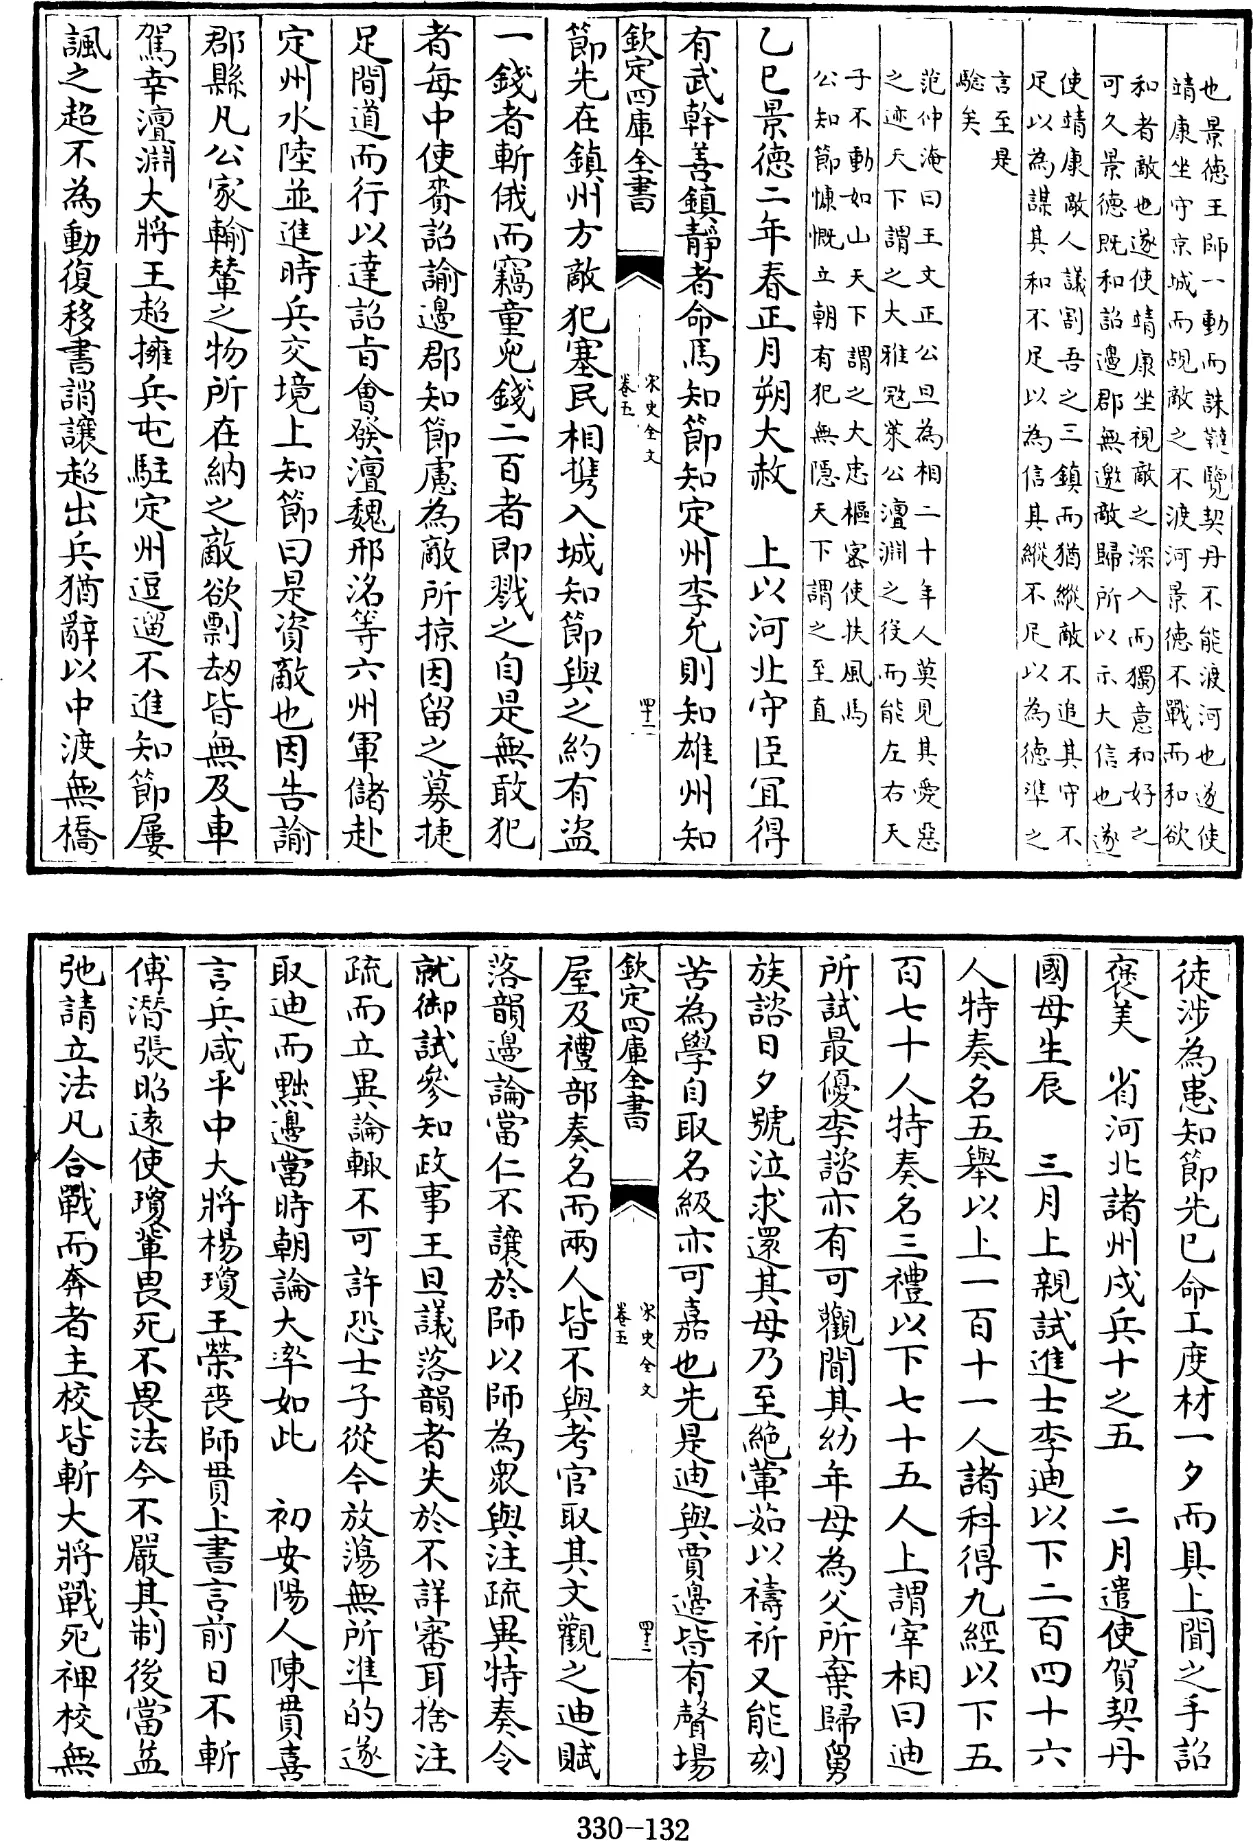 也景德王師一動而誅韃覽契丹不能渡河也遂使
靖康坐守京城而覘敵之不渡河景德不戰而和欲
和者敵也遂使靖康坐視敵之深入而獨意和好之
可久景德既和詔邊郡無邀敵歸所以示大信也遂
使靖康敵人議割吾之三鎮而猶縱敵不追其守不
足以為謀其和不足以為信其縱不足以為德準之
言至是
驗矣
范仲淹曰王文正公旦為相二十年人莫見其愛惡
之迹天下謂之大雅冦萊公澶淵之役而能左右天
子不動如山天下謂之大忠樞宻使扶風馬
公知節慷慨立朝有犯無隱天下謂之至直
乙巳景德二年春正月朔大赦　上以河北守臣宜得
有武幹善鎮靜者命馬知節知定州李允則知雄州知
欽定四庫全書
宋史全文
卷五
四十二
節先在鎮州方敵犯塞民相携入城知節與之約有盜
一錢者斬俄而竊童兒錢二百者即戮之自是無敢犯
者每中使賫詔諭邊郡知節慮為敵所掠因留之募捷
足間道而行以達詔旨會發澶魏邢洺等六州軍儲赴
定州水陸並進時兵交境上知節曰是資敵也因告諭
郡縣凡公家輸輦之物所在納之敵欲剽刼皆無及車
駕幸澶淵大將王超擁兵屯駐定州逗遛不進知節屢
諷之超不為動復移書誚讓超出兵猶辭以中渡無橋
徒涉為患知節先已命工度材一夕而具上聞之手詔
褒美　省河北諸州戍兵十之五　二月遣使賀契丹
國母生辰　三月上親試進士李迪以下二百四十六
人特奏名五舉以上一百十一人諸科得九經以下五
百七十人特奏名三禮以下七十五人上謂宰相曰迪
所試最優李諮亦有可觀聞其幼年母為父所棄歸舅
族諮日夕號泣求還其母乃至絶葷茹以禱祈又能刻
苦為學自取名級亦可嘉也先是迪與賈邊皆有聲場
欽定四庫全書
宋史全文
卷五
四十三
屋及禮部奏名而兩人皆不與考官取其文觀之迪賦
落韻邊論當仁不讓於師以師為衆與注疏異特奏令
就御試參知政事王旦議落韻者失於不詳審耳捨注
疏而立異論輒不可許恐士子從今放蕩無所準的遂
取迪而黜邊當時朝論大率如此　初安陽人陳貫喜
言兵咸平中大將楊瓊王榮喪師貫上書言前日不斬
傅潛張昭逺使瓊輩畏死不畏法今不嚴其制後當益
弛請立法凡合戰而奔者主校皆斬大將戰死裨校無
330-132